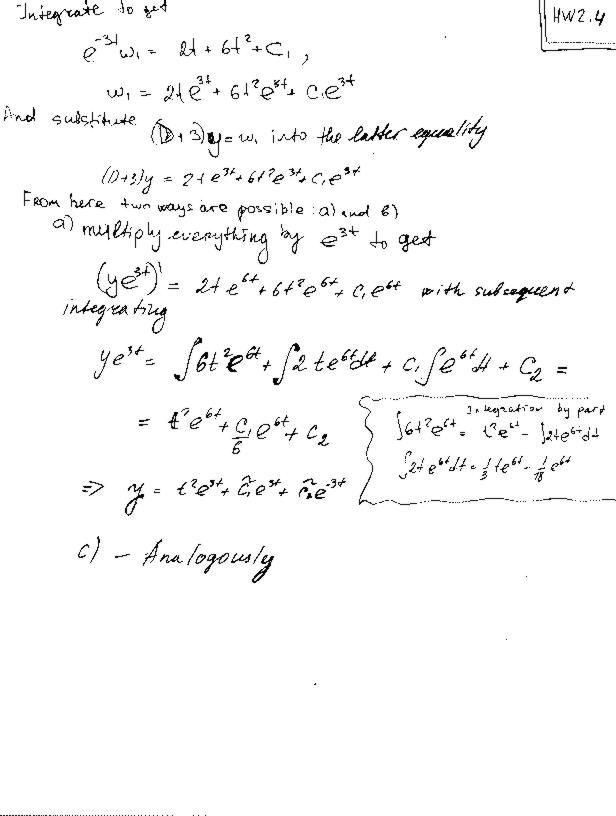 Integrate to get
HW2.4
e^{-3t} w₁ = 2t + 6t² + C₁ ,
w₁ = 2t e^{3t} + 6t² e^{3t} + C₁ e^{3t}
And substitute (D+3)y = w₁ into the latter equality
(D+3)y = 2t e^{3t} + 6t² e^{3t} + C₁ e^{3t}
From here two ways are possible : a) and b)
a) multiply everything by e^{3t} to get
(ye^{3t})' = 2t e^{6t} + 6t² e^{6t} + C₁ e^{6t} with subsequent
integrating
ye^{3t} = ∫6t² e^{6t} + ∫2te^{6t}dt + C₁∫e^{6t}dt + C₂ =
= t² e^{6t} + C₁/6 e^{6t} + C₂
Integration by part
∫6t² e^{6t} = t² e^{6t} - ∫2te^{6t}dt
∫2t e^{6t}dt = 1/3 te^{6t} - 1/18 e^{6t}
⇒ y = t² e^{3t} + c̃₁ e^{3t} + c̃₂ e^{-3t}
c) - Analogously